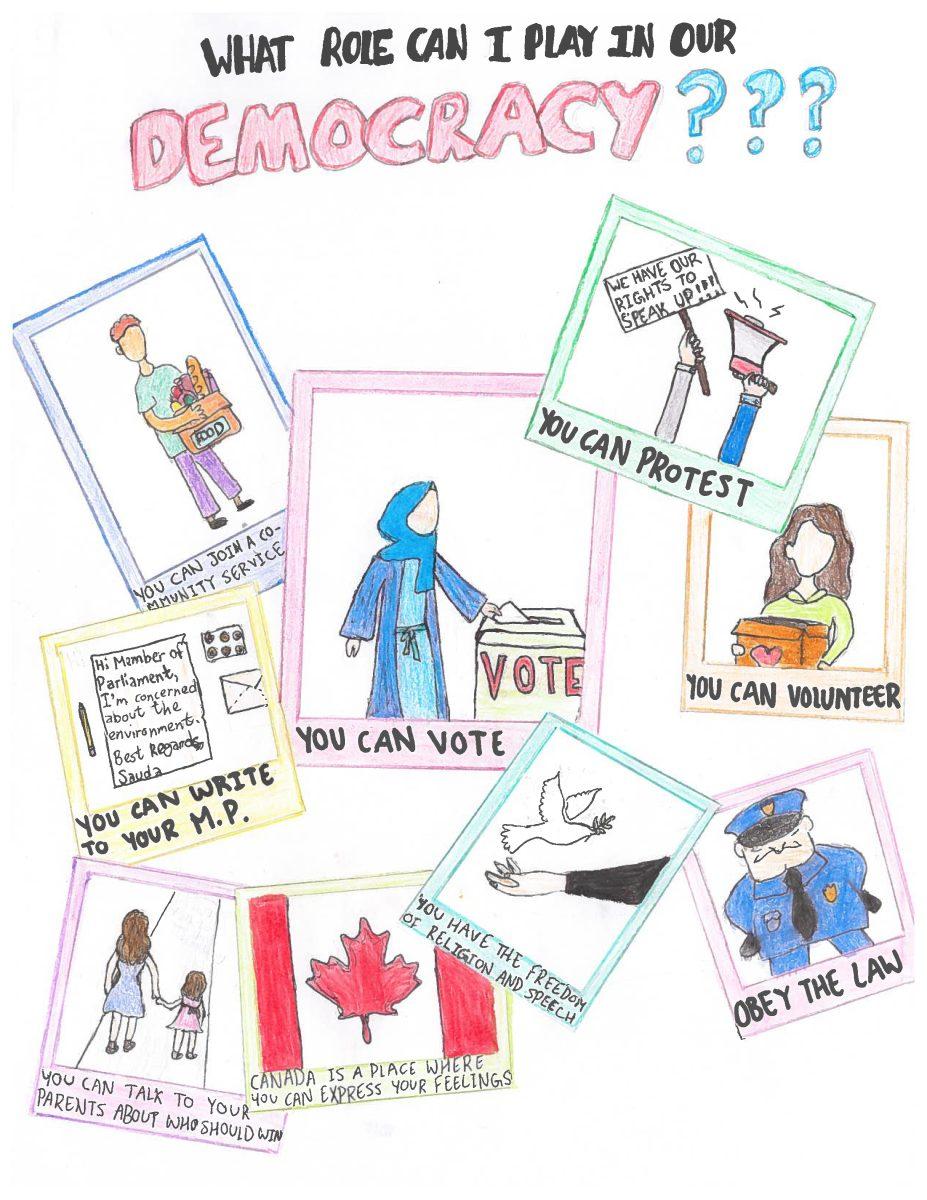 WHAT ROLE CAN I PLAY IN OUR
DEMOCRACY???
WE HAVE OUR
RIGHTS TO
SPEAK UP!!!
YOU CAN PROTEST
FOOD
YOU CAN JOIN A CO-
MMUNITY SERVICE
VOTE
YOU CAN VOTE
YOU CAN VOLUNTEER
Hi Member of
Parliament,
I'm concerned
about the
environment.
Best Regards
Sauda
YOU CAN WRITE
TO YOUR M.P.
YOU HAVE THE FREEDOM
OF RELIGION AND SPEECH
OBEY THE LAW
YOU CAN TALK TO YOUR
PARENTS ABOUT WHO SHOULD WIN
CANADA IS A PLACE WHERE
YOU CAN EXPRESS YOUR FEELINGS